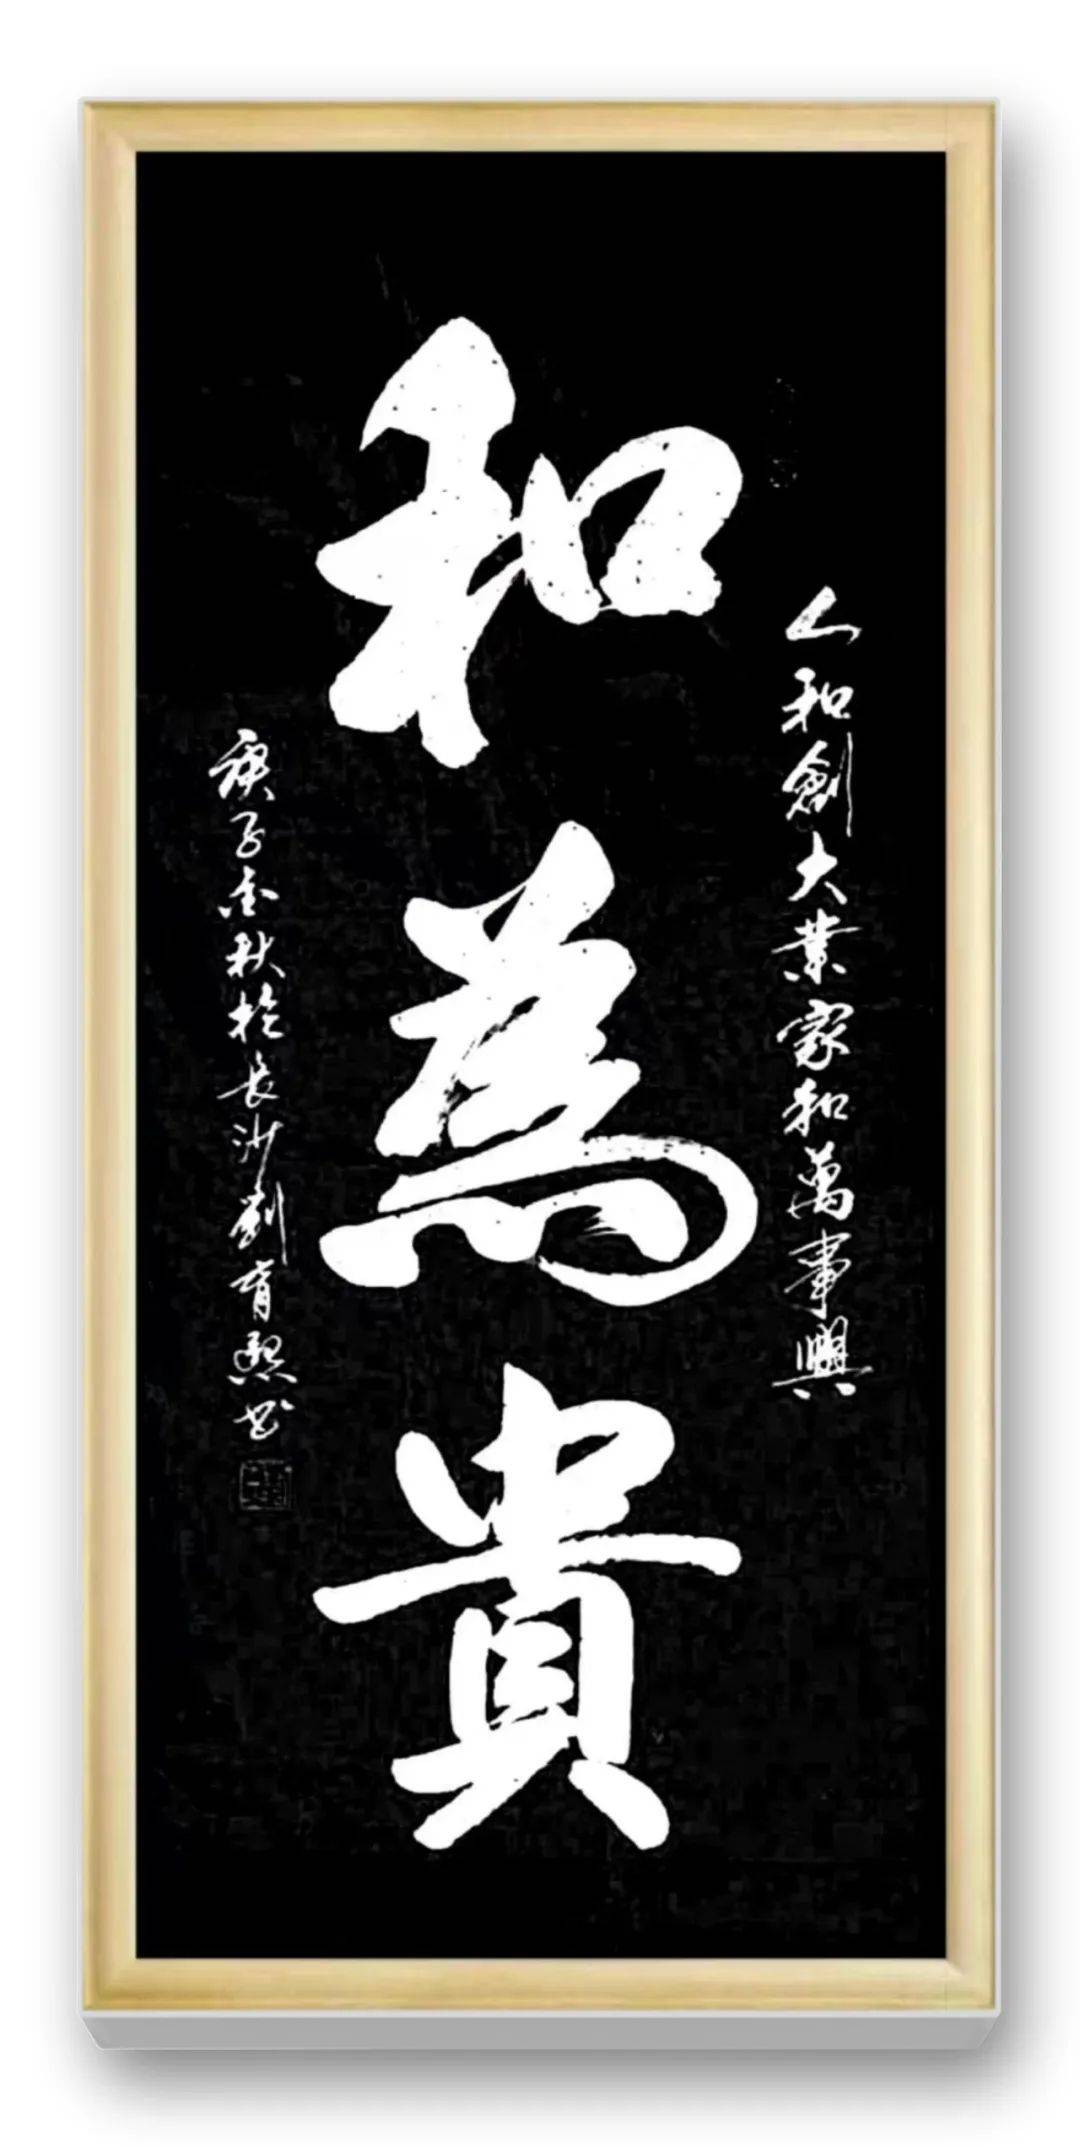 人和創大業家和萬事興
和為貴
庚子金秋於長沙劉育熙书